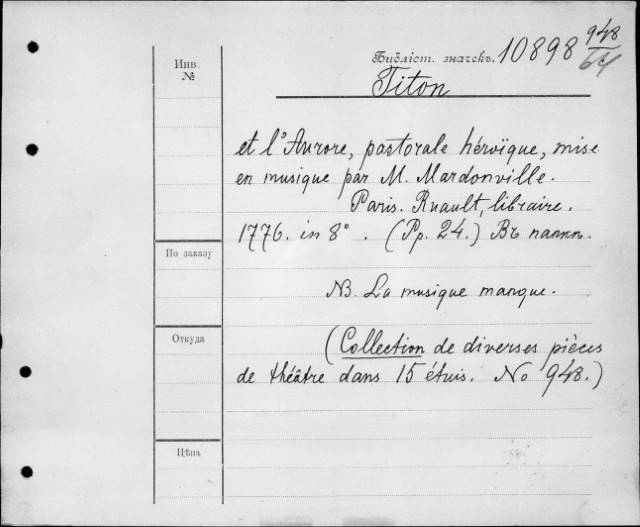 Инв. №
Библіот. значекъ. 10898 948/64
Titon
et l'Aurore, pastorale héroïque, mise
en musique par M. Mardonville.
Paris. Ruault, libraire.
1776. in 8°. (Pp. 24.) Въ папкѣ.
По заказу
NB. La musique manque.
Откуда
(Collection de diverses pièces
de théâtre dans 15 étuis. No 948.)
Цѣна